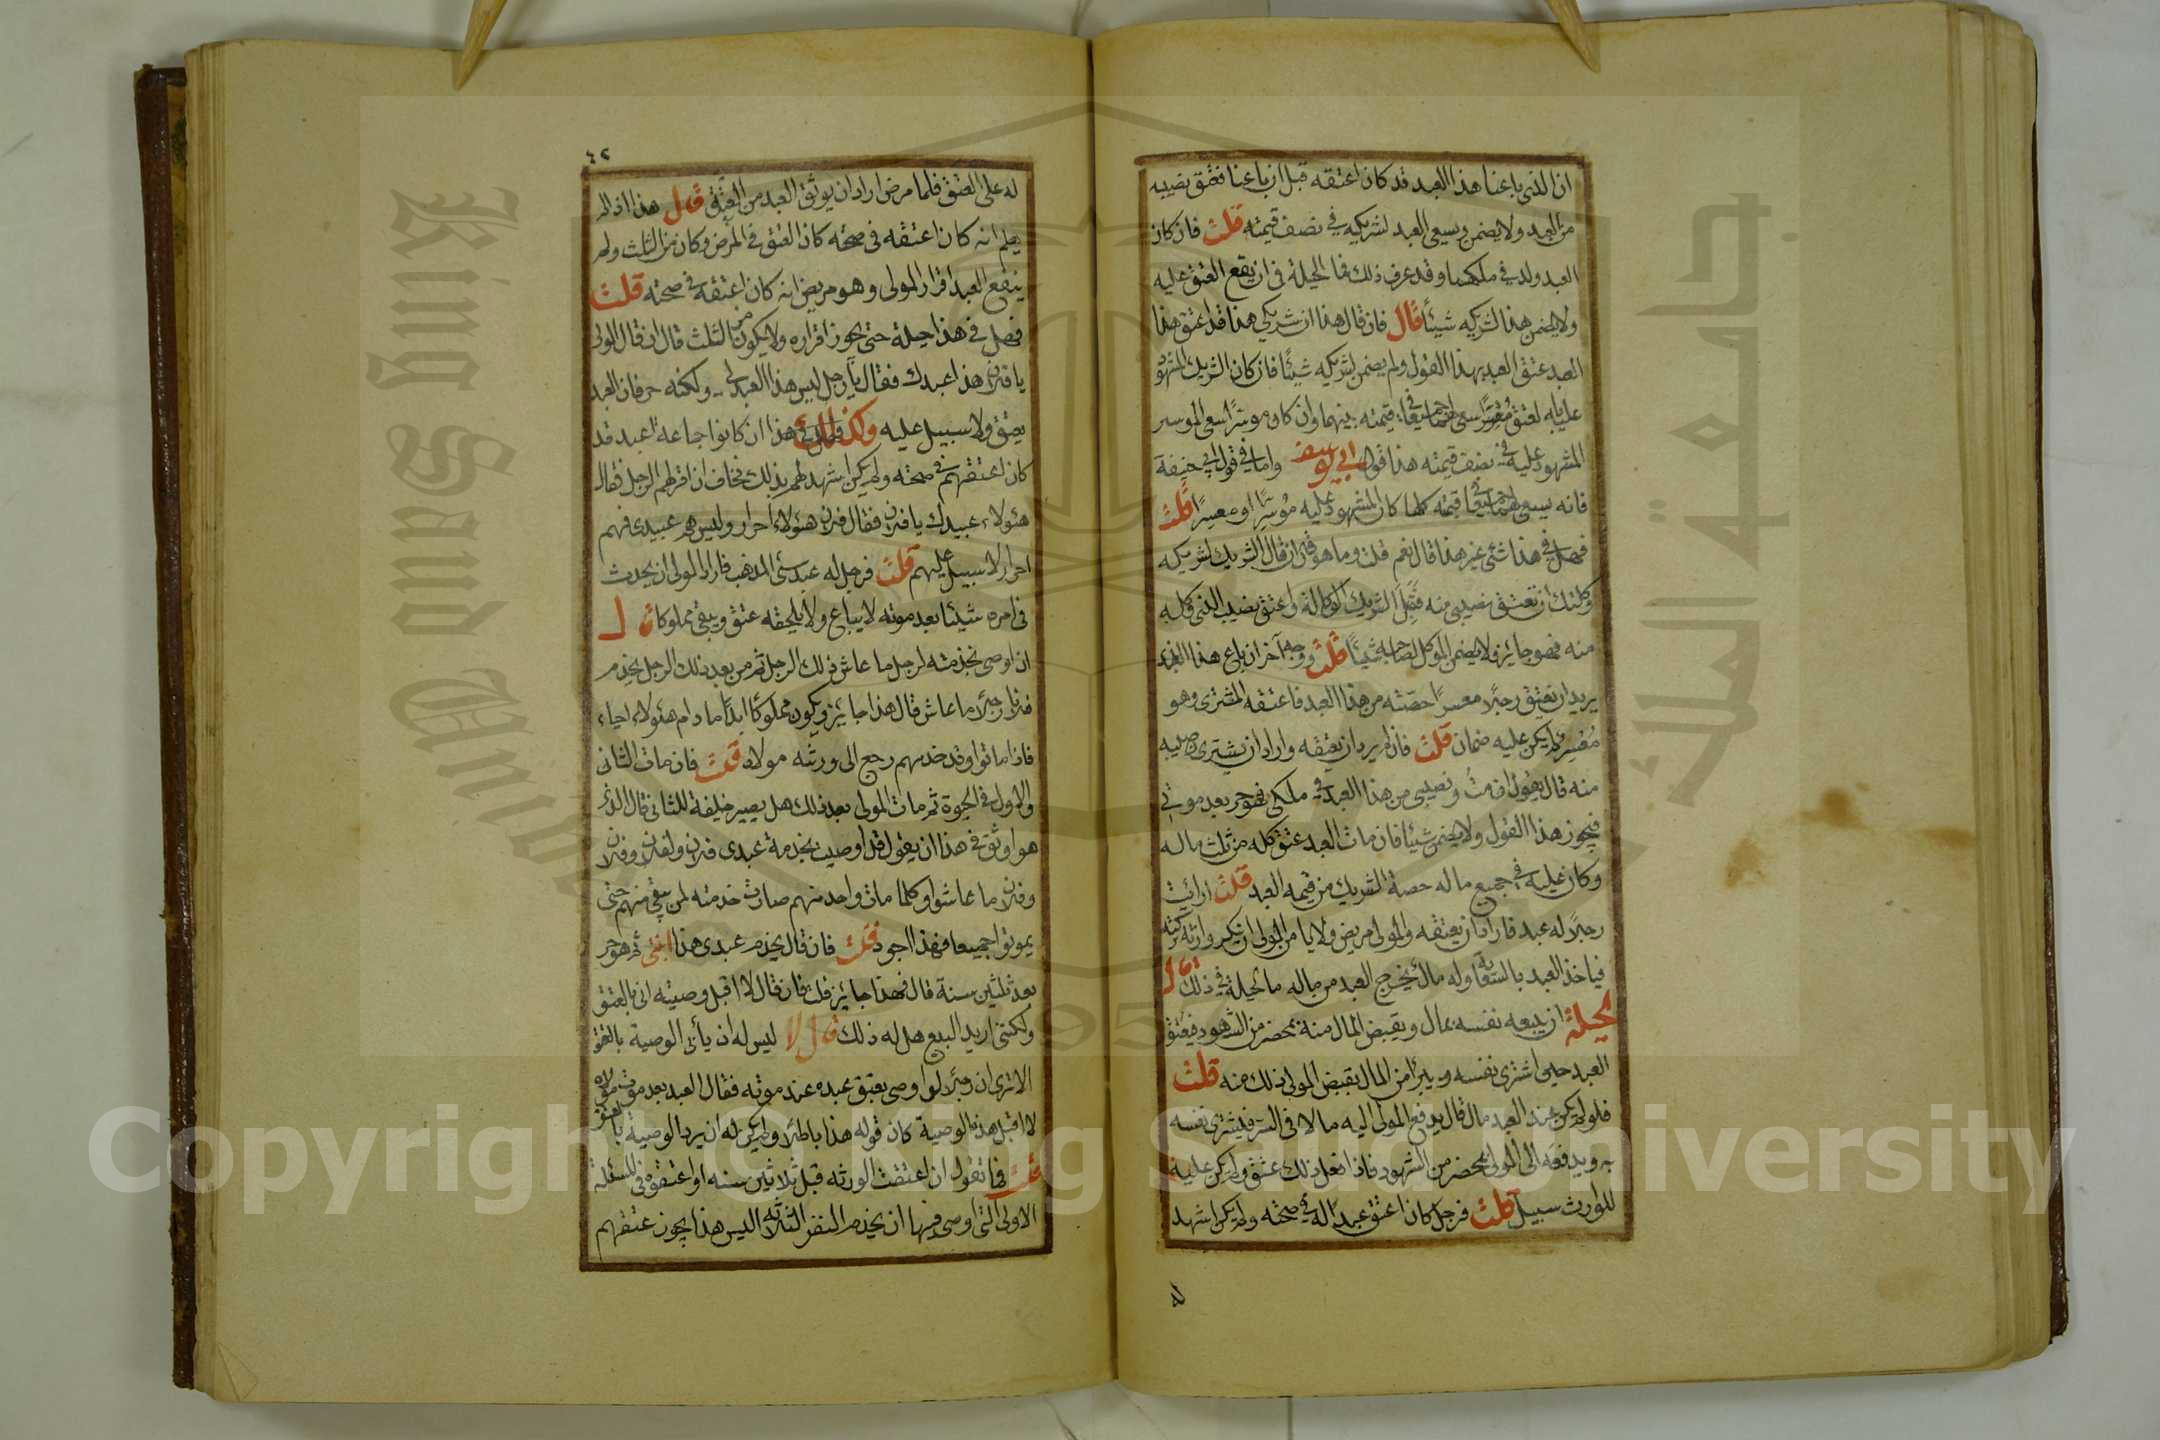 ان الذي باعنا هذا العبد قد كان اعتقه قبل ان باعنا فعتق نصيبه
من العبد ولا يضمن ويسعى العبد لشريكه في نصف قيمته قلت فان كان
العبد ولد في ملكهما وقد عرف ذلك فما الحيلة في ان يقع العتق عليه
ولا يضمن هذا لشريكه شيئا قال فان قال هذا ان شريكي هذا قد اعتق هذا
العبد عتق العبد بهذا القول ولم يضمن لشريكه شيئًا فان كان الشريك المشهود
عليه بالعتق معسرًا سعى لهما جميعًا في قيمته بينهما وان كان موسرًا سعى للموسر
المشهود عليه في نصف قيمته هذا قول ابي يوسف واما في قول ابي حنيفة
فانه يسعى لهما جميعًا في قيمته كلها كان المشهود عليه مُوسرًا او معسرًا قلت
فهل في هذا شئ غير هذا قال نعم قلت وما هو قال ان قال الشريك لشريكه
وكلتك ان تعتق نصيبي منه فقبل الشريك الوكالة واعتق نصيب الذي وكله
منه فهو جايز ولا يضمن الموكل لصاحبه شيئًا قلت ووجه آخر ان باع هذا الذي
يريد ان يعتق رجلا معسرًا حصّته من هذا العبد فاعتقه المشترى وهو
مُعسر لم يكن عليه ضمان قلت فان لم يرد ان يعتقه واراد ان يشترى نصيبه
منه قال يقول ان متُ ونصيبى من هذا العبد في ملكى فهو حر بعد موتي
فيجوز هذا القول ولا يضمن شيئا فان مات العبد عتق كله من ثلث ماله
وكان عليه في جميع ماله حصة الشريك من قيمة العبد قلت ارايت
رجلا له عبد فاراد ان يعتقه والمولى مريض ولا يامن المولى ان ينكر وارثه تركته
فياخذ العبد بالسعاية وله مال يخرج العبد من ماله ما الحيلة في ذلك قال
الحيلة ان يبيعه نفسه بمال ويقبض المال منه بمحضر من الشهود فيعتق
العبد حين اشترى نفسه ويبرأ من المال بقبض المولى ذلك منه قلت
فلو لم يكن عند العبد مال قال يدفع المولى اليه مالا في السر فيشترى نفسه
به ويدفعه الى المولى بمحضر من الشهود فاذا فعل ذلك عتق ولم يكن عليه
للوارث سبيل قلت فرجل كان اعتق عبدا له في صحته ولم يكن اشهد
له
٤٢
له على العتق فلما مرض اراد ان يوثق العبد من العتق قال هذا اذا لم
يعلم انه كان اعتقه في صحته كان العتق في المرض وكان من الثلث ولم
ينتفع العبد اقرار المولى وهو مريض انه كان اعتقه في صحته قلت
فهل في هذا حيلة حتى يجوز اقراره ولا يكون من الثلث قال ان قال المولى
يا فلان هذا عبدك فقال الرجل ليس هذا العبد لي ولكنه حر فان العبد
يعتق ولا سبيل عليه وكذلك قال في هذا ان كانوا جماعة اعبد قد
كان اعتقهم في صحته ولم يكن اشهد لهم بذلك فخاف ان اقر لهم الرجل فقال
هئولاء عبيدك يا فلان فقال فلان هئولاء احرار وليس هم عبيدى فهم
احرار لا سبيل عليهم قلت فرجل له عبد سئ المذهب فاراد المولى ان يحدث
في امره شيئا بعد موته لا يباع ولا يلحقه عتق ويبقى مملوكا قال
ان اوصى بخدمته لرجل ما عاش ذلك الرجل ثم من بعد ذلك الرجل يخدم
فلانا رجلا ما عاش قال هذا جايز ويكون مملوكًا ابدًا ما دام هئولاء احياء
فاذا ماتوا وقد خدمهم رجع الى ورثة مولاه قلت فان مات الثانى
والاول في الحيوة ثم مات المولى بعد ذلك هل يصير خليفة للثانى قال الذى
هو اوثق في هذا ان يقول قد اوصيت بخدمة عبدى فلان لفلان وفلان
وفلان ما عاشوا وكلما مات واحد منهم صارت خدمته لمن بقي منهم حتى
يموتوا جميعا فهذا اجود قلت فان قال يخدم عبدى هذا ابنى ثم هو حر
بعد ثلثين سنة قال فهذا جايز قلت فان قال لا اقبل وصيته انى بالعتق
ولكننى اريد البيع هل له ذلك قال لا ليس له ان يأبى الوصية بالعتق
الا ترى ان رجلا لو اوصى بعتق عبده عند موته فقال العبد بعد موت مولاه
لا اقبل هذه الوصية كان قوله هذا باطلا ولم يكن له ان يرد الوصية بالعتق
قلت فما تقول ان اعتقت الورثه قبل ثلاثين سنه او اعتقوه في المسئلة
الاولى التى اوصى فيها ان يخدم النفر الثلاثه اليس هذا يجوز عتقهم
Copyright © King Saud University
King Saud University
جامعة الملك سعود
1957